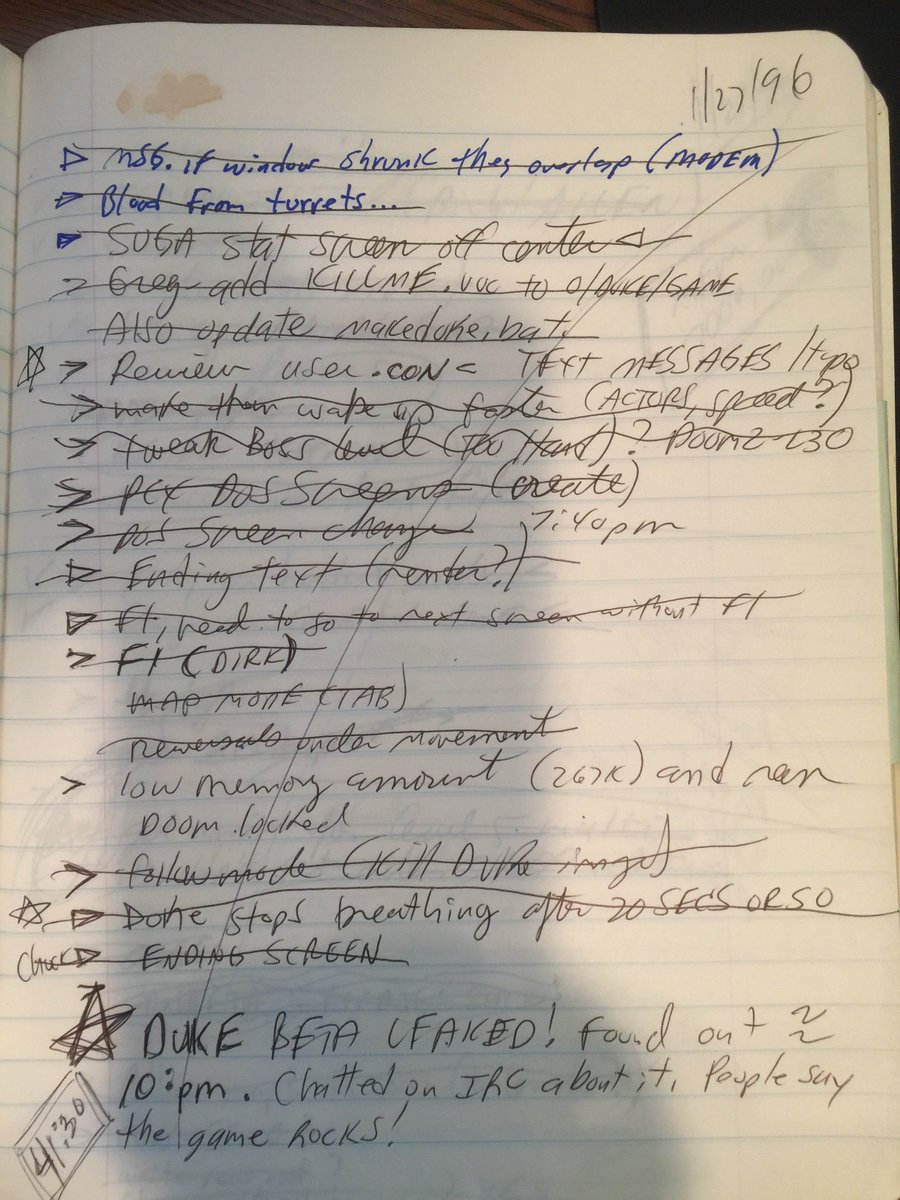 1/27/96
MSG. if window shrunk they overlap (MODEM)
Blood from turrets...
SVGA stat screen off center
Greg add KILLME.voc to O/DUKE/GAME
Also update makeduke.bat.
Review user.con = TEXT MESSAGES /typo
make them wake up faster (ACTORS, speed?)
tweak Boss level (TOO Hard)? Doom2 L30
PCX DOS Screens (create)
DOS Screen change 7:40pm
Ending text (center?)
F1, need to go to next screen without F1
F1 (DIRK)
MAP MODE (TAB)
under movement
low memory amount (267K) and ran
Doom. locked
follow mode (Kill Duke image)
Duke stops breathing after 20 SECS OR SO
Check ENDING SCREEN
DUKE BETA LEAKED! Found out ≈
10:pm. Chatted on IRC about it. People say
the game Rocks!
4:30